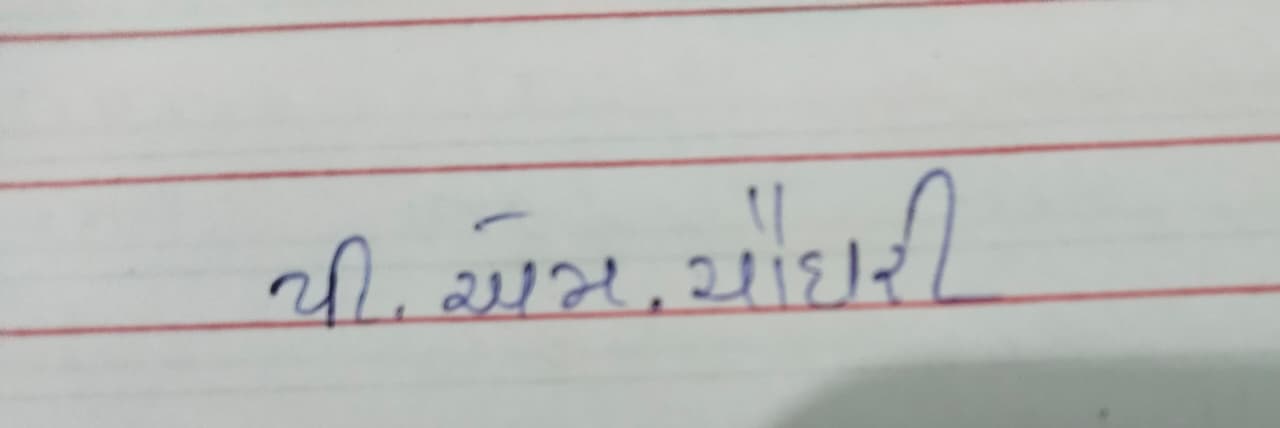 પી. એમ. ચૌધરી